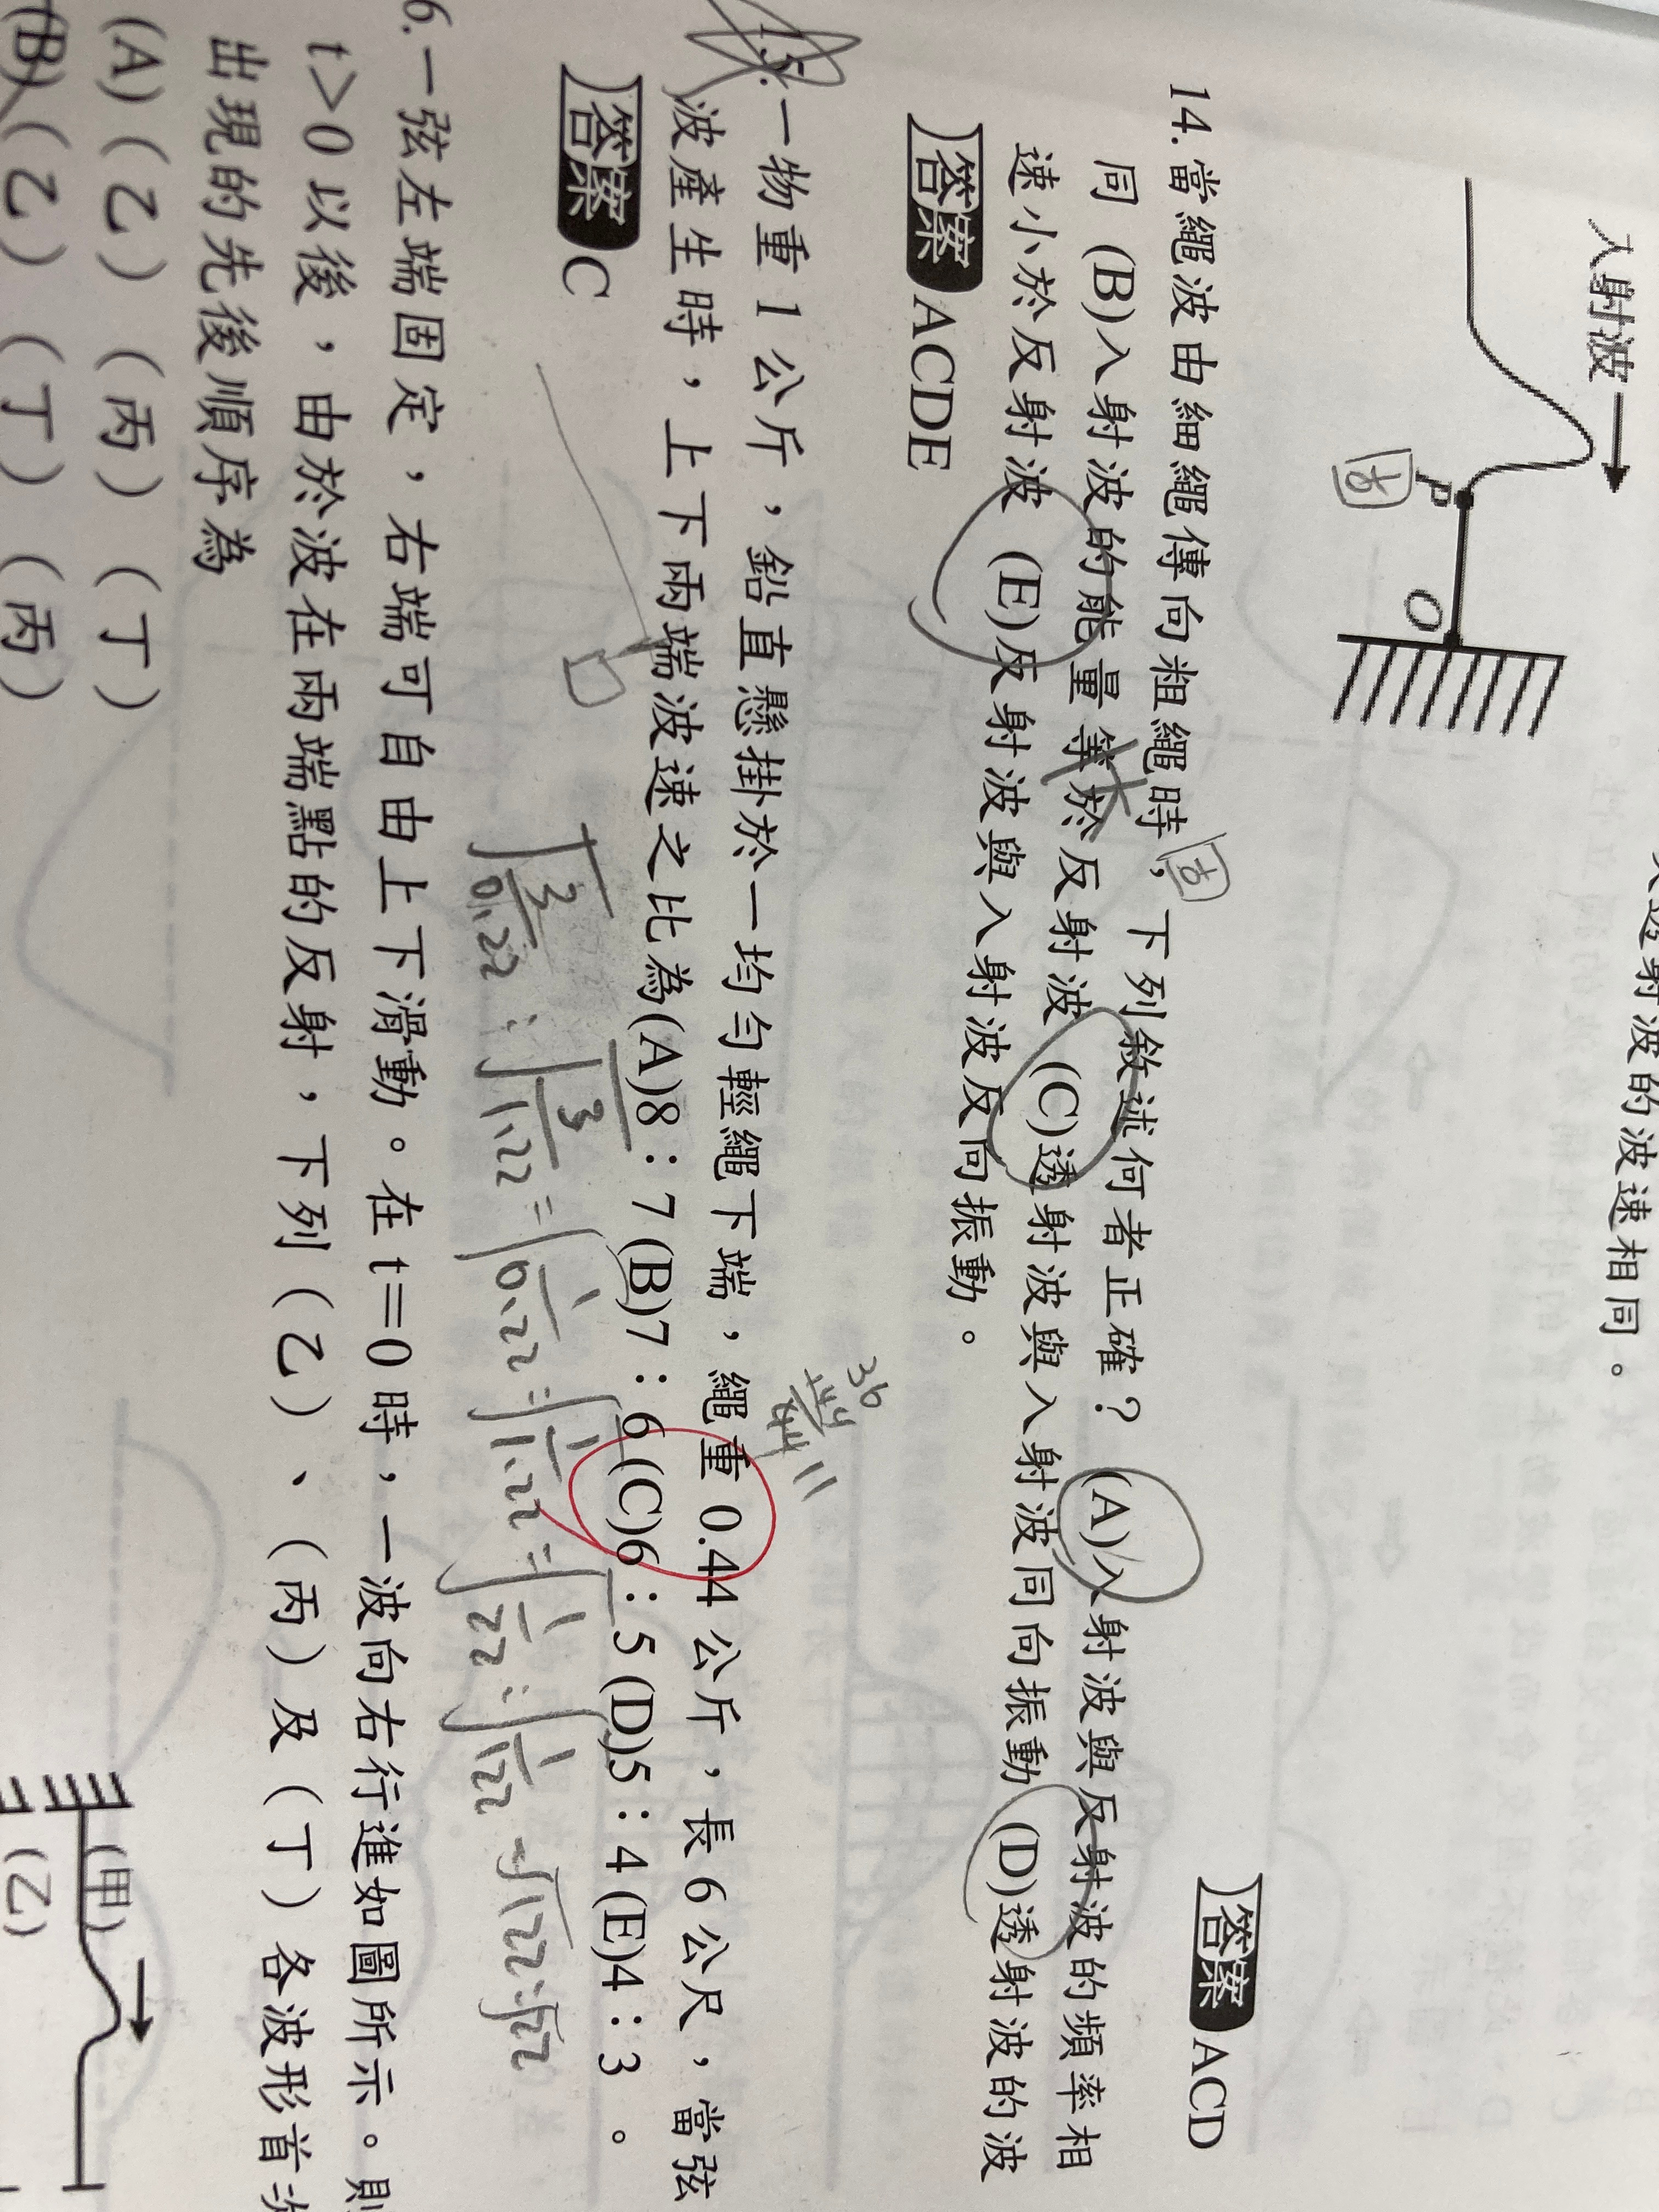 入射波
P
古
O
射波的波速相同。
答案 ACD
14.當繩波由細繩傳向粗繩時，下列敘述何者正確？(A)入射波與反射波的頻率相
古
同 (B)入射波的能量等於反射波 (C)透射波與入射波同向振動 (D)透射波的波
速小於反射波 (E)反射波與入射波反向振動。
答案 ACDE
36
15.一物重1公斤，鉛直懸掛於一均勻輕繩下端，繩重0.44公斤，長6公尺，當弦
波產生時，上下兩端波速之比為(A)8：7(B)7：6(C)6：5(D)5：4(E)4：3。
答案 C
√3/0.22 : √3/1.22 = √1/0.22 : √1/1.22 = √1/22 : √1/122 = √122 : √22
6.一弦左端固定，右端可自由上下滑動。在t＝0時，一波向右行進如圖所示。則
t＞0以後，由於波在兩端點的反射，下列（乙）、（丙）及（丁）各波形首次
出現的先後順序為
(A)（乙）（丙）（丁）
(B)（乙）（丁）（丙）
(甲)
(乙)